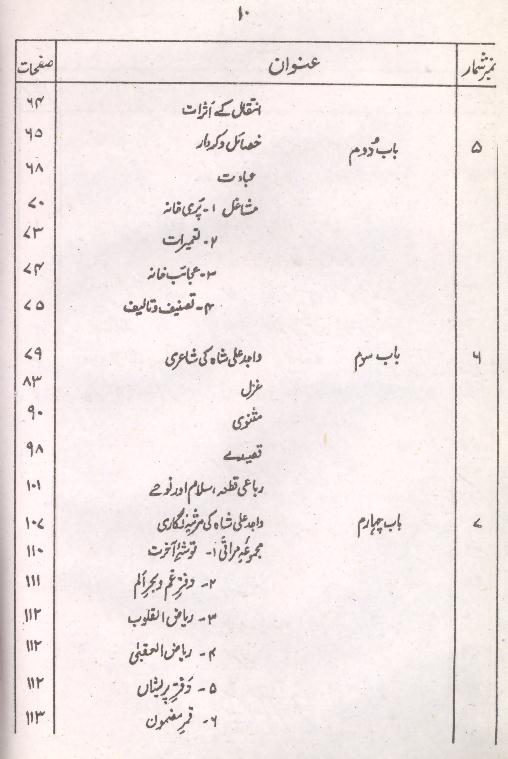 ۱۰
نمبر شمار عنوان صفحات
انتقال کے اثرات ۶۴
۵ باب دُوم خصائل و کردار ۶۵
عبادت ۶۸
مشاغل ۱- پری خانہ ۷۰
۲- تعمیرات ۷۳
۳- عجائب خانہ ۷۴
۴- تصنیف و تالیف ۷۵
۶ باب سوم واجد علی شاہ کی شاعری ۷۹
غزل ۸۳
مثنوی ۹۰
قصیدے ۹۸
رباعی قطعہ، سلام اور نوحے ۱۰۱
۷ باب چہارم واجد علی شاہ کی مرثیہ نگاری ۱۰۷
مجموعۂ مراثی ۱- توشۂ آخرت ۱۱۰
۲- دفترِ غم و بحرِ الم ۱۱۱
۳- ریاض القلوب ۱۱۲
۴- ریاض العقبیٰ ۱۱۲
۵- دَفترِ پریشاں ۱۱۲
۶- قمرِ مضمون ۱۱۳